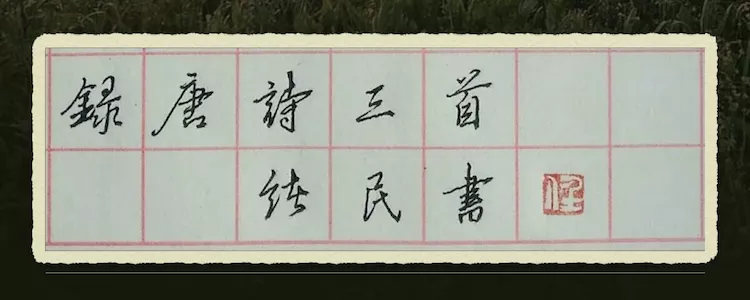 録唐詩三首
民書
任